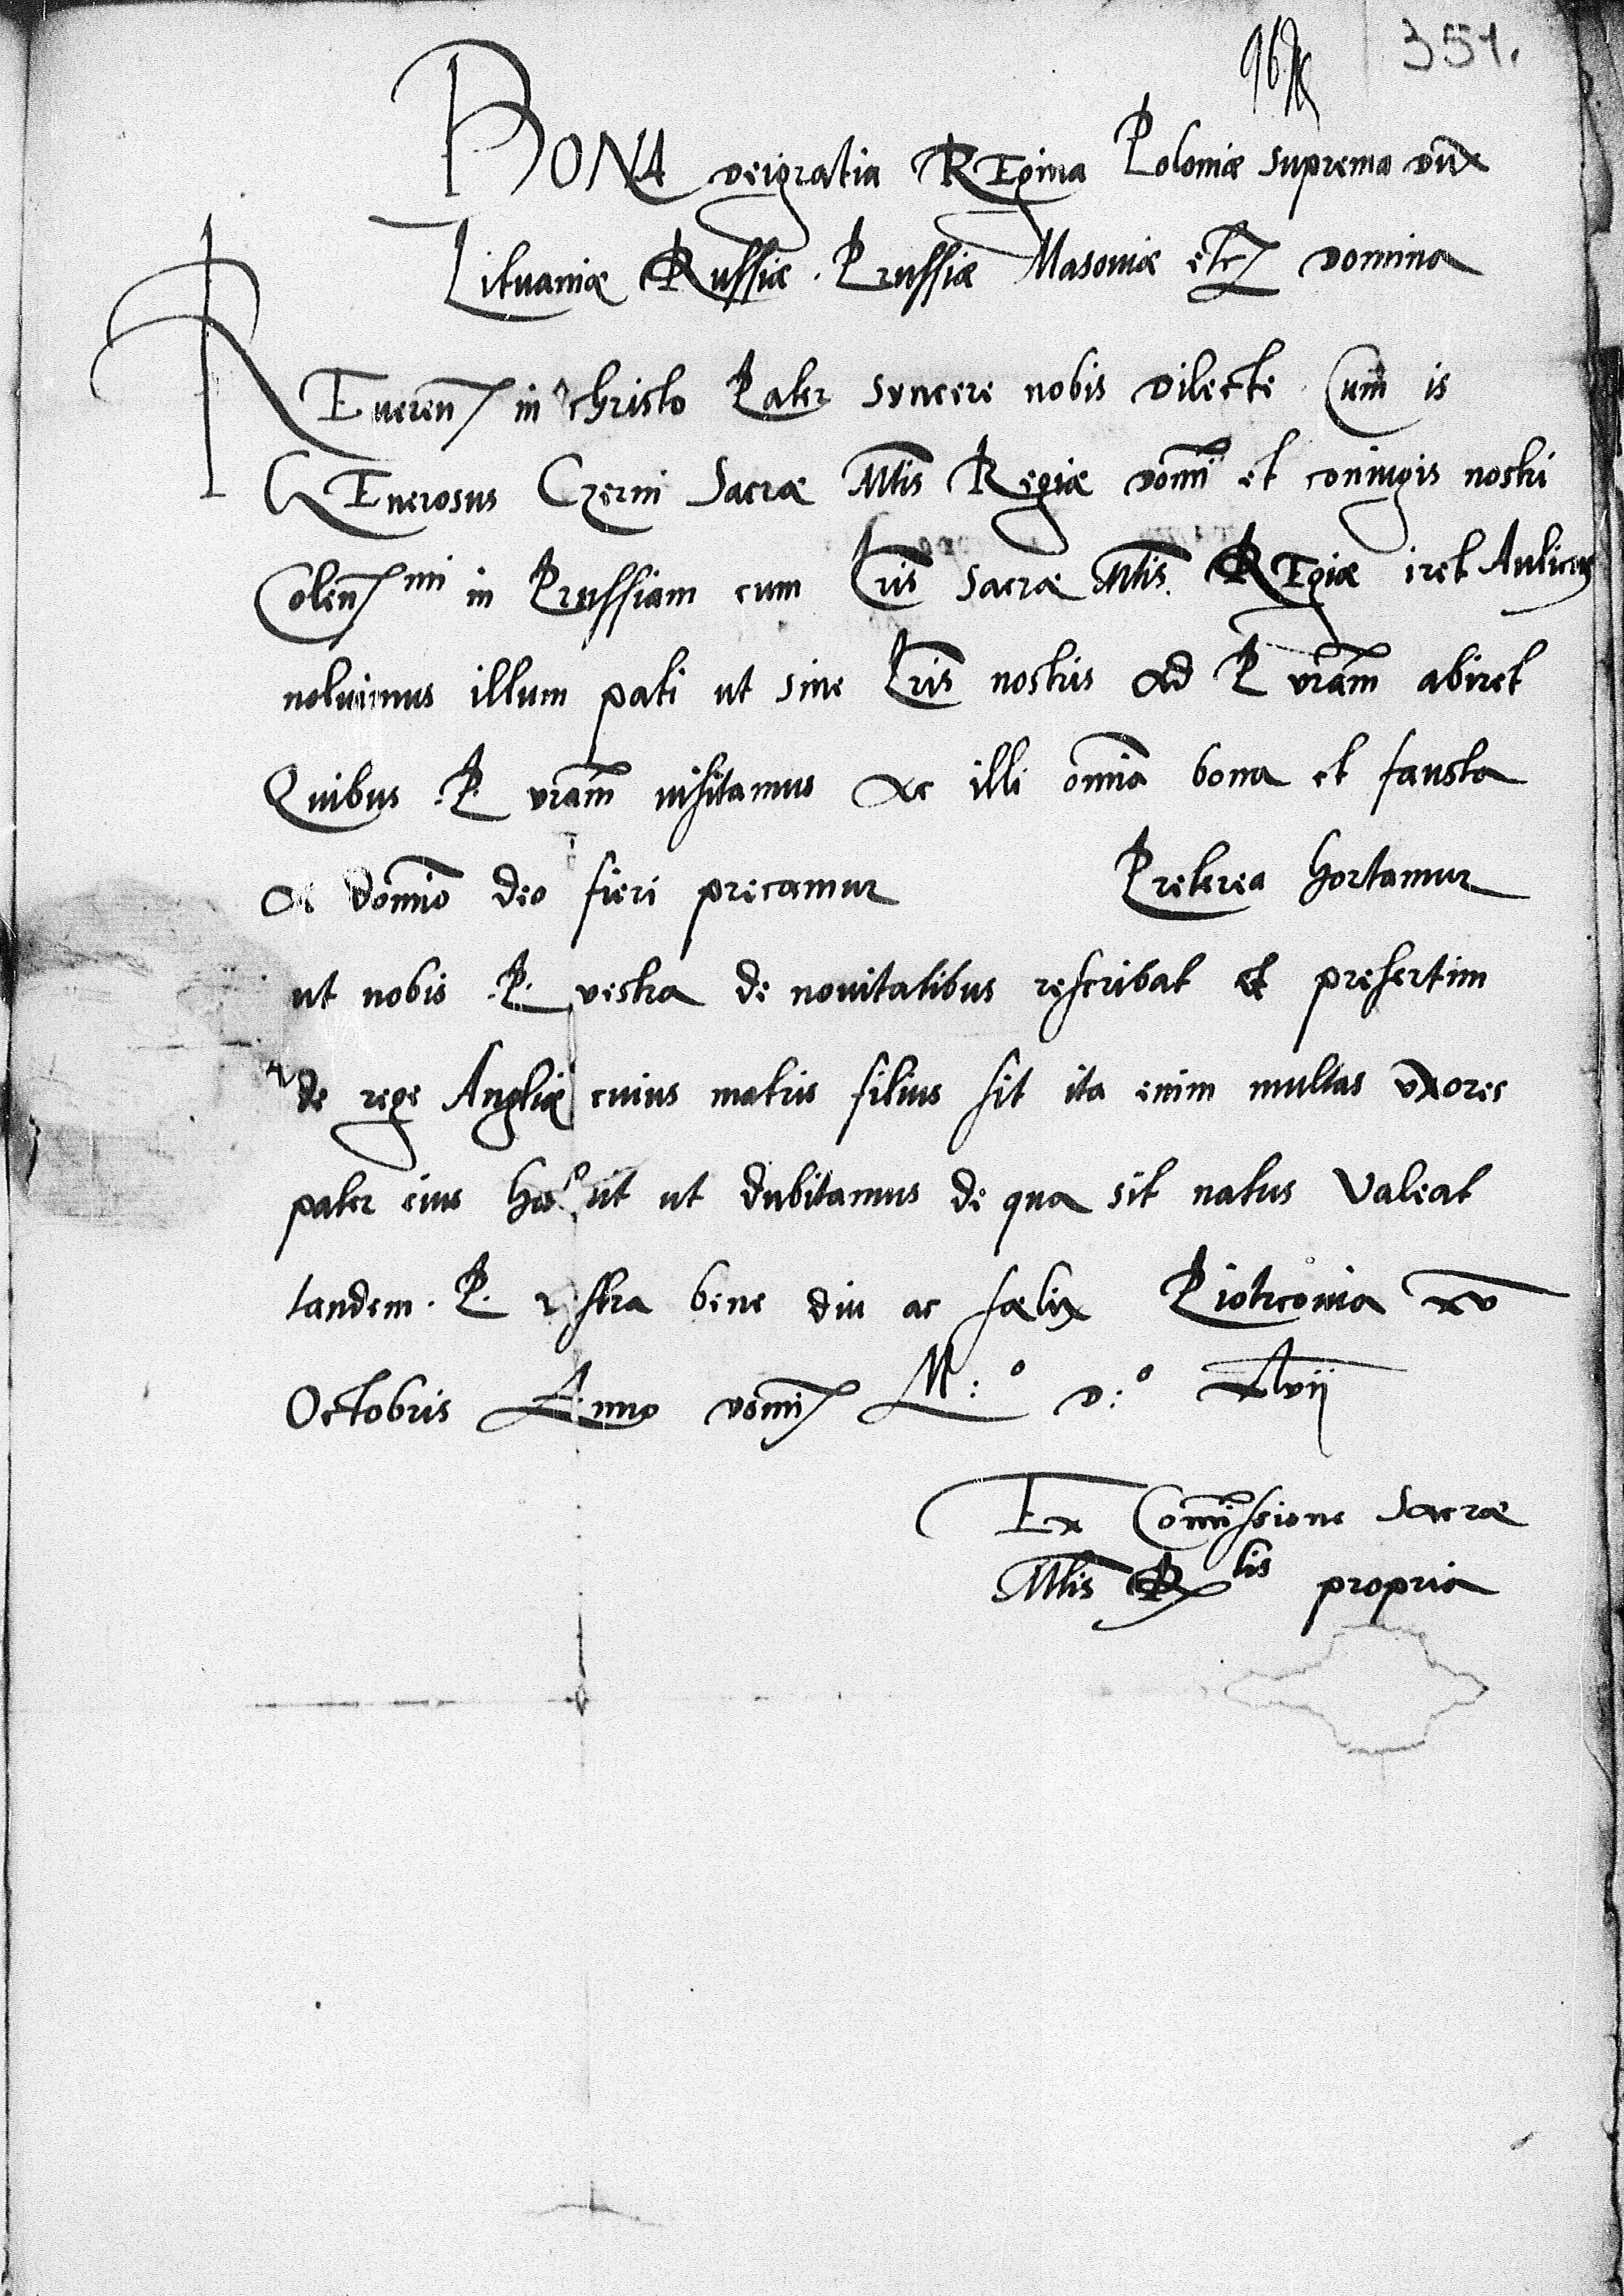 351.
BONA deigratia REgina Poloniæ suprema dux
Lituaniæ Russiæ . Prussiæ Masoviæ etc domina
REueren in christo Pater syncere nobis dilecte Cum is
GEnerosus Czerni Sacræ Mtis Regiæ domi et coniugis nostri
Colen mi in Prussiam cum Lris Sacræ Mtis. REgiæ iret Aulicus
noluimus illum pati ut sine Lris nostris ad P vram abiret
Quibus .P. vram uisitamus ac illi omia bona et fausta
a domio deo fieri precamur Preterea hortamur
ut nobis .P. vestra de nouitatibus rescribat et presertim
de rege Angliæ cuius matris filius sit ita enim multas uxores
pater eius ut dubitamus de qua sit natus Valeat
tandem . P. vestra bene diu ac fælix Piotrconia xv
Octobris Anno domi M:o D:o xlvii
Ex Commissione Sacræ
Mtis Rlis propria